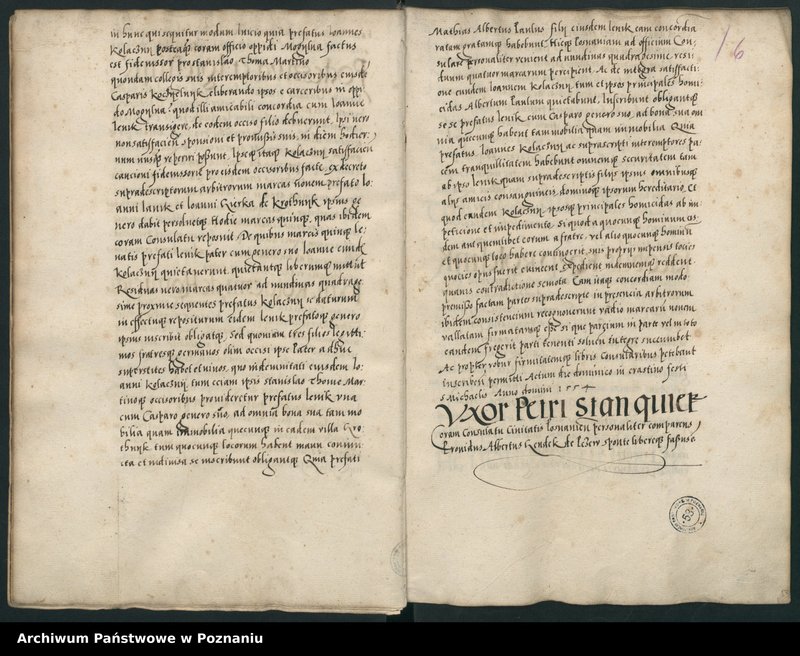 in hunc qui sequitur modum Inicio quia prefatus Ioannes
Kolaczni postea coram officio oppidi Mogylna factus
est fideiussor pro stanislao Thoma Martino
quondam collegis suis interemptoribus et occisoribus eiusdē
Casparis liberando ipsos e carceribus in oppi
do Mogylna: quod illi amicabili concordia cum Ioanne
lenik transigere, de eodem occiso filio debuerunt, Ipsi vero
non satisfacien sponsioni et suis, in diem hodier
num
cautioni fideiussorie pro eisdem occisoribus facte, ex decreto
supradescriptorum arbitrorum marcas novem prefato Io
anni lenik et Ioanni Gierka de Krothnyk ipsius ge
nero dabit Hodie marcas quinque, quas ibidem
coram Consulatu reposuit. De quibus marcis quinque le
vatis prefati lenik pater cum genero suo Ioanne eundē
Kolaczni quietaverunt quietantque liberumque
Residuas vero marcas quatuor ad nundinas quadrage
sime proxime sequentes prefatus Kolaczni se daturum
in effectumque repositurum Eidem lenik prefatoque genero
ipsius inscribit obligatque, Sed quoniam tres filios legitti
mos fratresque germanos olim occisi ipse Pater adhuc
superstites habet et vivos, quo indemnitati eiusdem Io
anni Kolaczni tum eciam ipsis stanislao Thome Mar
tinoque occisoribus provideretur prefatus lenik una
cum Casparo genero suo, ad omnia bona sua tam mo
bilia quam immobilia quecunque in eadem villa Kro
thnik tum quocunque locorum habent manu coniun
cta et indivisa se inscribunt obligantque Quia prefati
Mathias Albertus Paulus filii eiusdem lenik eam concordiā
ratam gratamque habebunt. Hicque Posnaniam ad officium Con
sulare personaliter venient ad nundinas quadragesime resi
duum quatuor marcarum percipient Ac de integra satisfacti
one eundem Ioannem Kolaczni tum et ipsos principales homi
cidas Albertum Paulum quietabunt. Inscribunt obligantque
se se prefatus lenik cum Casparo genero suo, ad bona sua om
nia quecunque habent tam mobilia quam immobilia Quia
prefatus Ioannes Kolaczni ac suprascripti interemptores pa
cem tranquillitatem habebunt omnemque securitatem tam
ab ipso lenik quam supradescriptis filiis ipsius omnibusque
aliis amicis consanguineis, dominoque ipsorum hereditario, Et
quod eundem Kolaczni, ipsosque principales homicidas ab im
peticione et impedimento, si quod a quocunque hominum as
dem antquemlibet eorum a fratre, vel alio quocunque hominū
et quocunque loco habere contingerit, suis propriis impensis tocies
quoties opus fuerit evincent Expedient indemnemque reddent
quavis contradictione semota. Tam itaque concordiam modo
premisso factam partes supradescripte in presencia arbitrorum
ibidem consistencium recognoverunt vadio marcarū novem
vallatam firmatamque esse si que parcium in parte vel in toto
eandem fregerit parti tenenti solucii tutore succumbet
Ac propter robur firmitatemque libris Consularibus petebant
inscriberi permitti Actum die dominico in crastino festi
s Michaelis Anno domini 1554
Vxor Petri Stanquiek
Coram Consulatu Civitatis Posnanien personaliter comparens
Providus Albertus Kendek de sponte libereque fassus ē
16
53
Archiwum Państwowe w Poznaniu